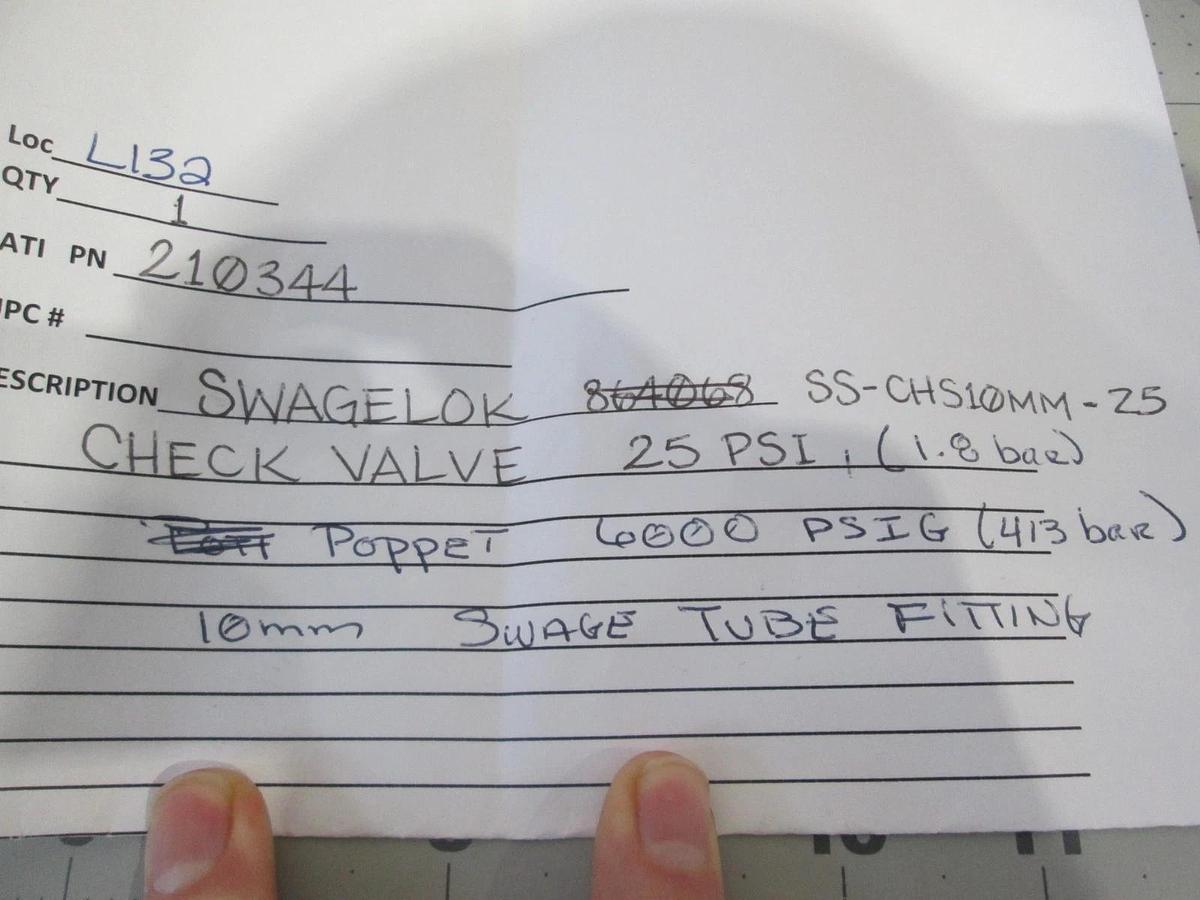 Loc L132
QTY 1
ATI PN 210344
PC #
ESCRIPTION SWAGELOK 864068 SS-CHS10MM-25
CHECK VALVE 25 PSI, (1.8 bar)
POPPET 6000 PSIG (413 bar)
10mm SWAGE TUBE FITTING
10 11